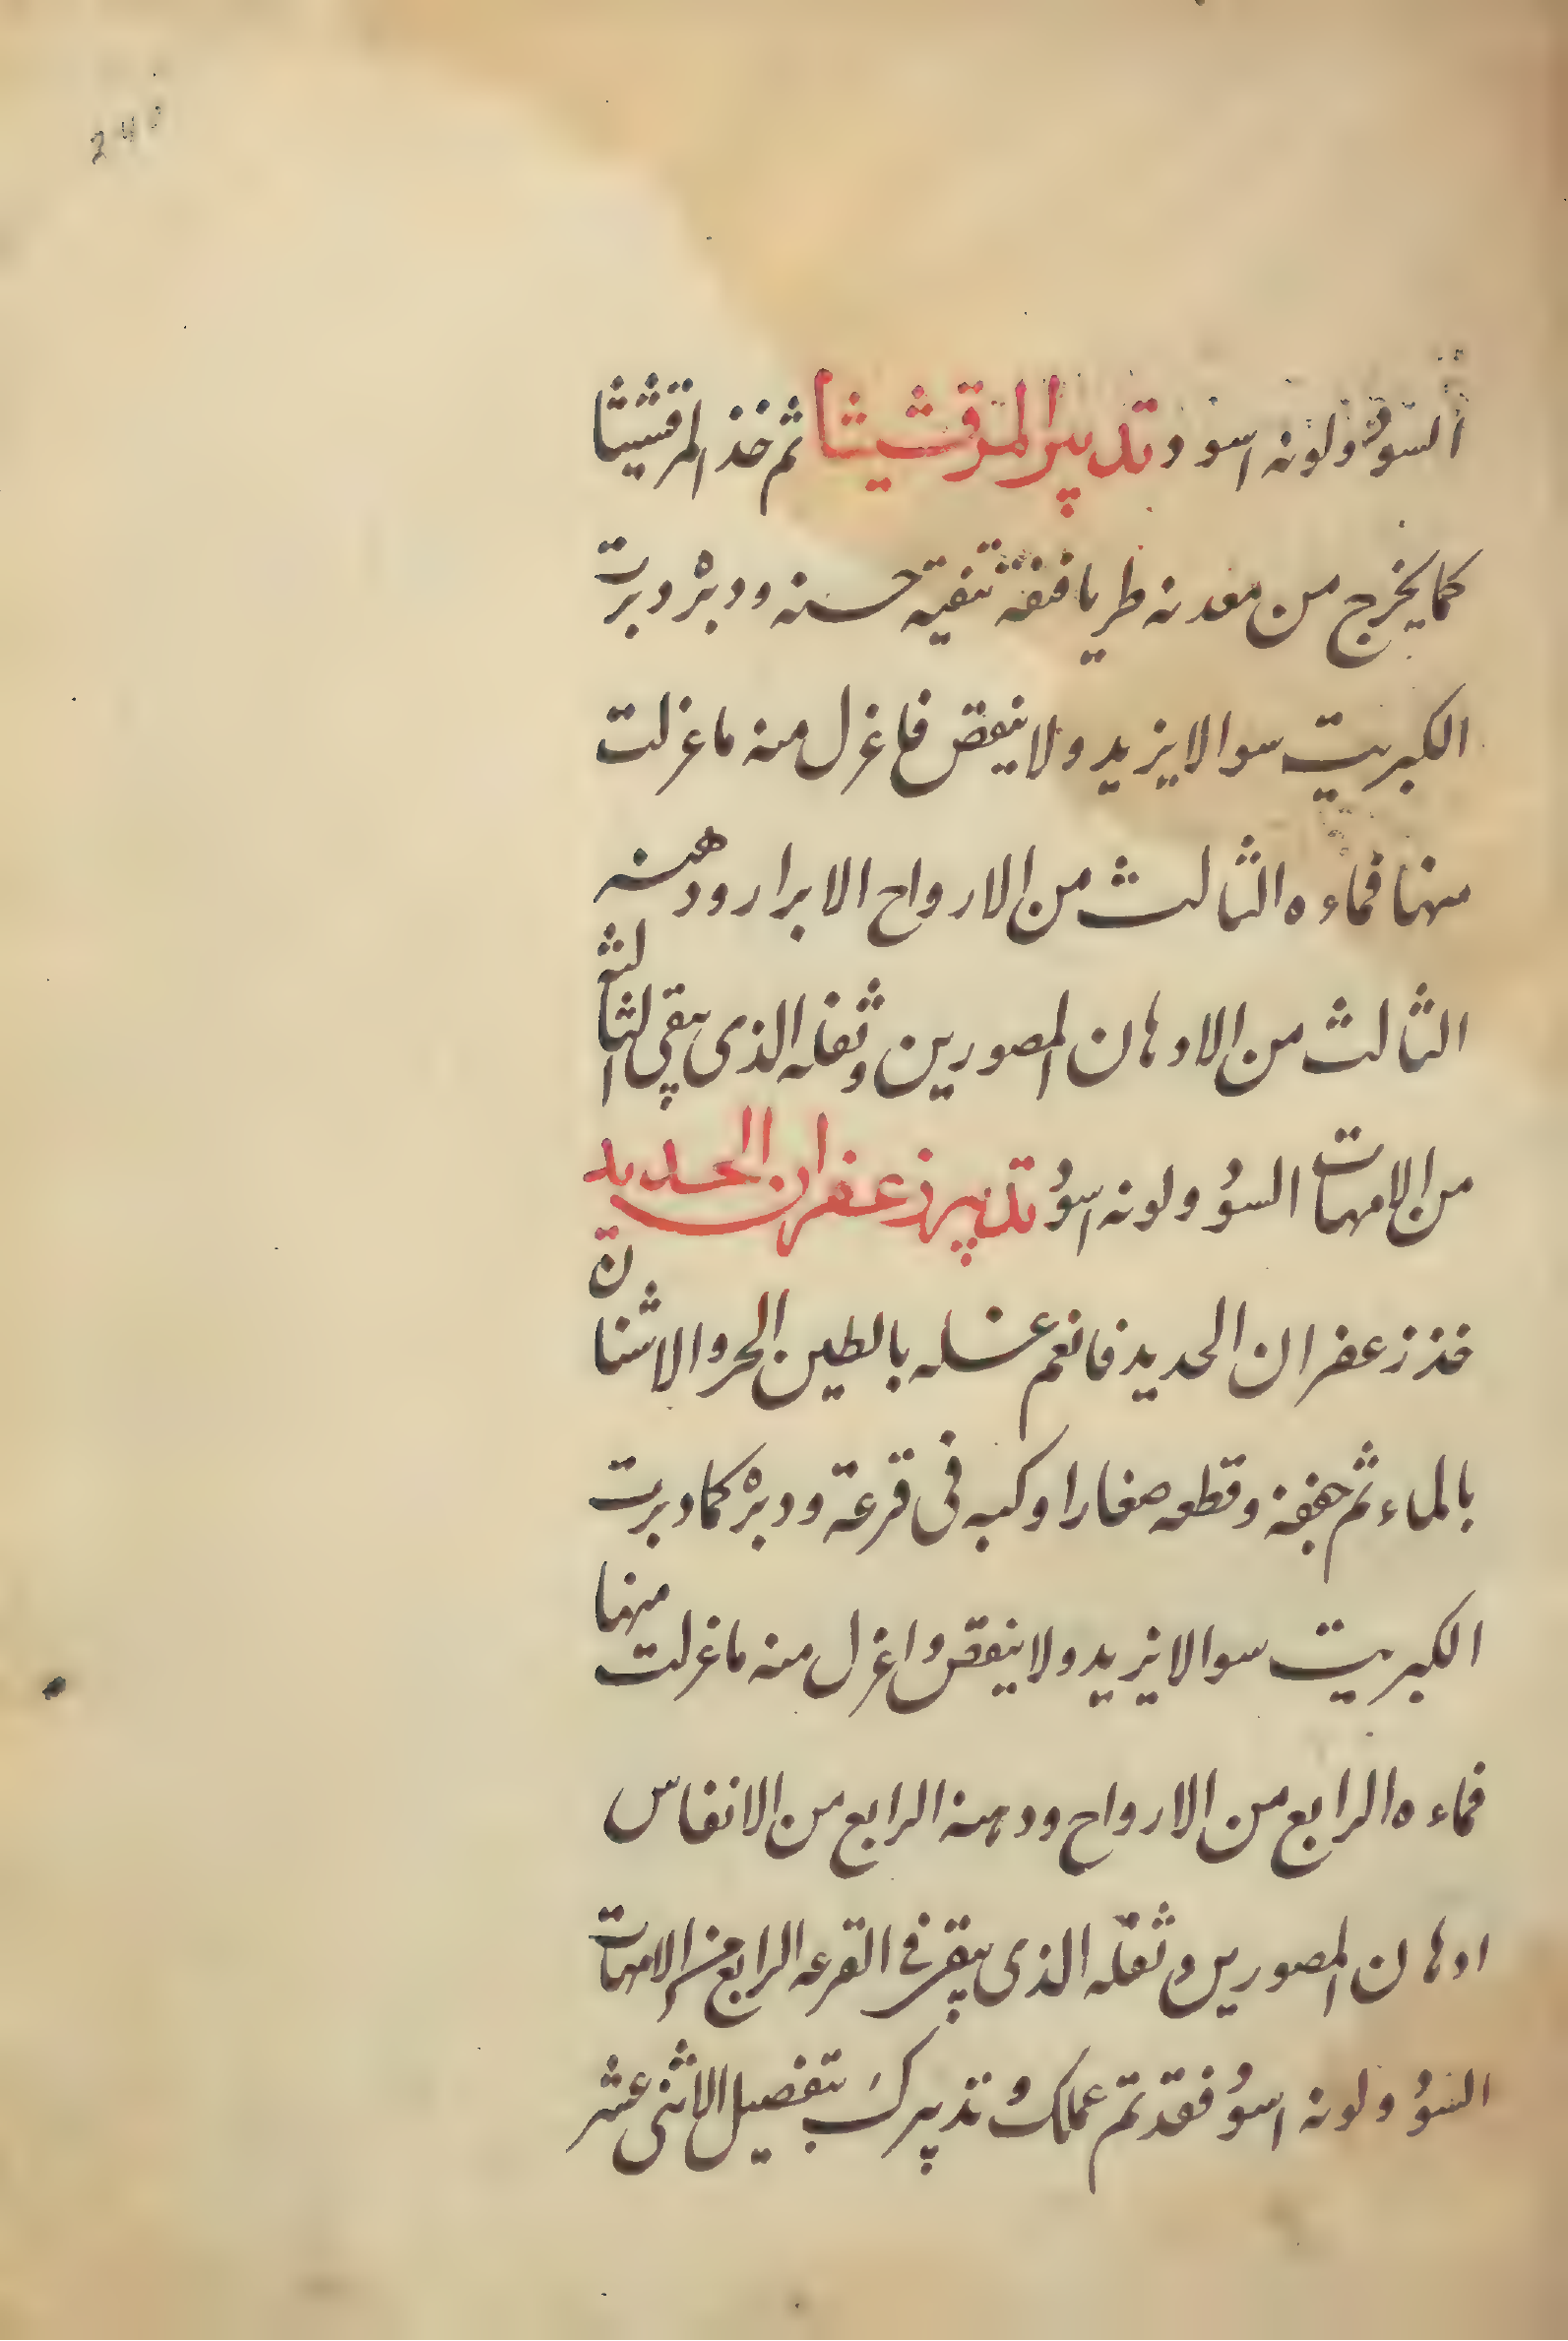 240
السود ولونه اسود وتدبير المرقشيشا ثم خذ المرقشيثا
كما يخرج من معدنه طريا فنقه تنقية حسنه ودبره دبرت
الكبريت سوا لا يزيد ولا ينقص فاغزل منه ما غزلت
منها فماءه الثالث من الارواح الابرار ودهنه
الثالث من الادهان المصورين وثفله الذى يبقى الثالث
من الامهات السود ولونه اسود تدبير زعفران الحديد
خذ زعفران الحديد فانعم غسله بالطين الحر والاشنان
بالماء ثم جففه وقطعه صغارا وكبه فى قرعة ودبره كما دبرت
الكبريت سوا لا يزيد ولا ينقص واغزل منه ما غزلت منها
فماءه الرابع من الارواح ودهنه الرابع من الانفاس
ادهان المصورين وثفله الذى يبقى في القرعه الرابع من الامهات
السود ولونه اسود فقد تم عملك وتدبيرك بتفصيل الاثنى عشر